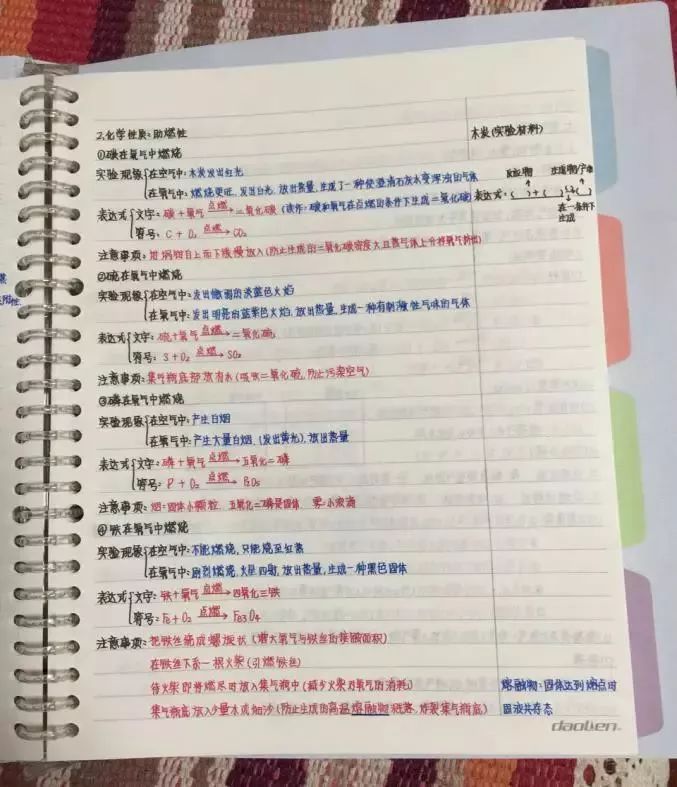 2.化学性质:助燃性
木炭(实验材料)
①碳在氧气中燃烧
实验现象{在空气中:木炭发出红光
在氧气中:燃烧更旺,发出白光,放出热量,生成了一种使澄清石灰水变浑浊的气体
反应物 生成物/产物
表达式:( )+( )→( )
在一条件下
生成
表达式{文字:碳+氧气 点燃→ 二氧化碳 (读作:碳和氧气在点燃的条件下生成二氧化碳)
符号:C + O₂ 点燃→ CO₂
注意事项:坩埚钳自上而下缓慢放入(防止生成的二氧化碳密度大且热气体上升将氧气挤出)
②硫在氧气中燃烧
实验现象{在空气中:发出微弱的淡蓝色火焰
在氧气中:发出明亮的蓝紫色火焰,放出热量,生成一种有刺激性气味的气体
表达式{文字:硫+氧气 点燃→ 二氧化硫
符号:S+O₂ 点燃→ SO₂
注意事项:集气瓶底部放有水(吸收二氧化硫,防止污染空气)
③磷在氧气中燃烧
实验现象{在空气中:产生白烟
在氧气中:产生大量白烟,(发出黄光),放出热量
表达式{文字:磷+氧气 点燃→ 五氧化二磷
符号:P + O₂ 点燃→ P₂O₅
注意事项:烟:固体小颗粒,五氧化二磷是固体 雾:小液滴
④铁在氧气中燃烧
实验现象{在空气中:不能燃烧,只能烧至红热
在氧气中:剧烈燃烧,火星四射,放出热量,生成一种黑色固体
表达式{文字:铁+氧气 点燃→ 四氧化三铁
符号:Fe+O₂ 点燃→ Fe₃O₄
注意事项:把铁丝绕成螺旋状(增大氧气与铁丝的接触面积)
在铁丝下系一根火柴(引燃铁丝)
待火柴即将燃尽时放入集气瓶中(减少火柴对氧气的消耗)
熔融物:固体达到熔点时
集气瓶底放入少量水或细沙(防止生成的高温熔融物溅落,炸裂集气瓶底)
固液共存态
daolien